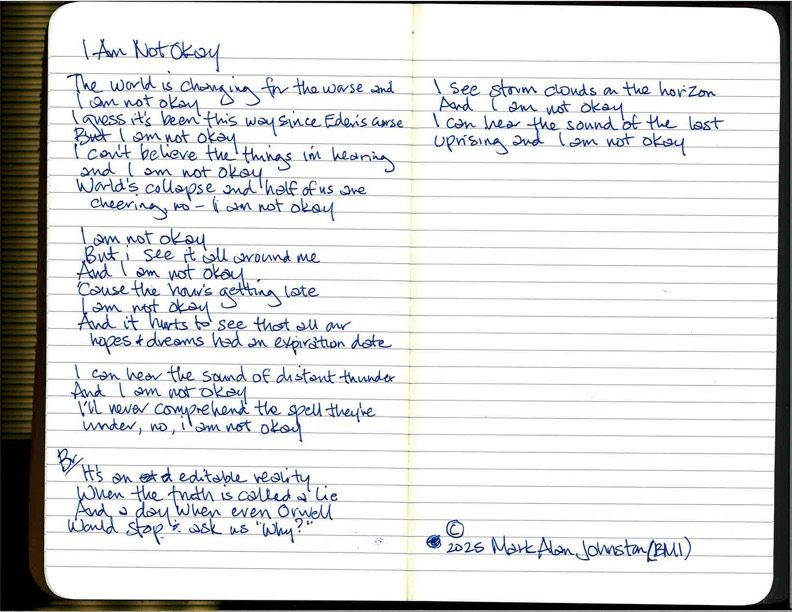 I Am Not Okay
The world is changing for the worse and
I am not okay
I guess it's been this way since Eden's curse
But I am not okay
I can't believe the things i'm hearing
and I am not okay
World's collapse and half of us are
cheering, no – I am not okay
I am not okay
But i see it all around me
And I am not okay
'Cause the hour's getting late
I am not okay
And it hurts to see that all our
hopes & dreams had an expiration date
I can hear the sound of distant thunder
And I am not okay
I'll never comprehend the spell they're
under, no, i am not okay
Br/
It's an editable reality
When the truth is called a lie
And a day when even Orwell
Would stop & ask us "Why?"
I see storm clouds on the horizon
And I am not okay
I can hear the sound of the last
uprising and I am not okay
©
2025 Mark Alan Johnston (BMI)